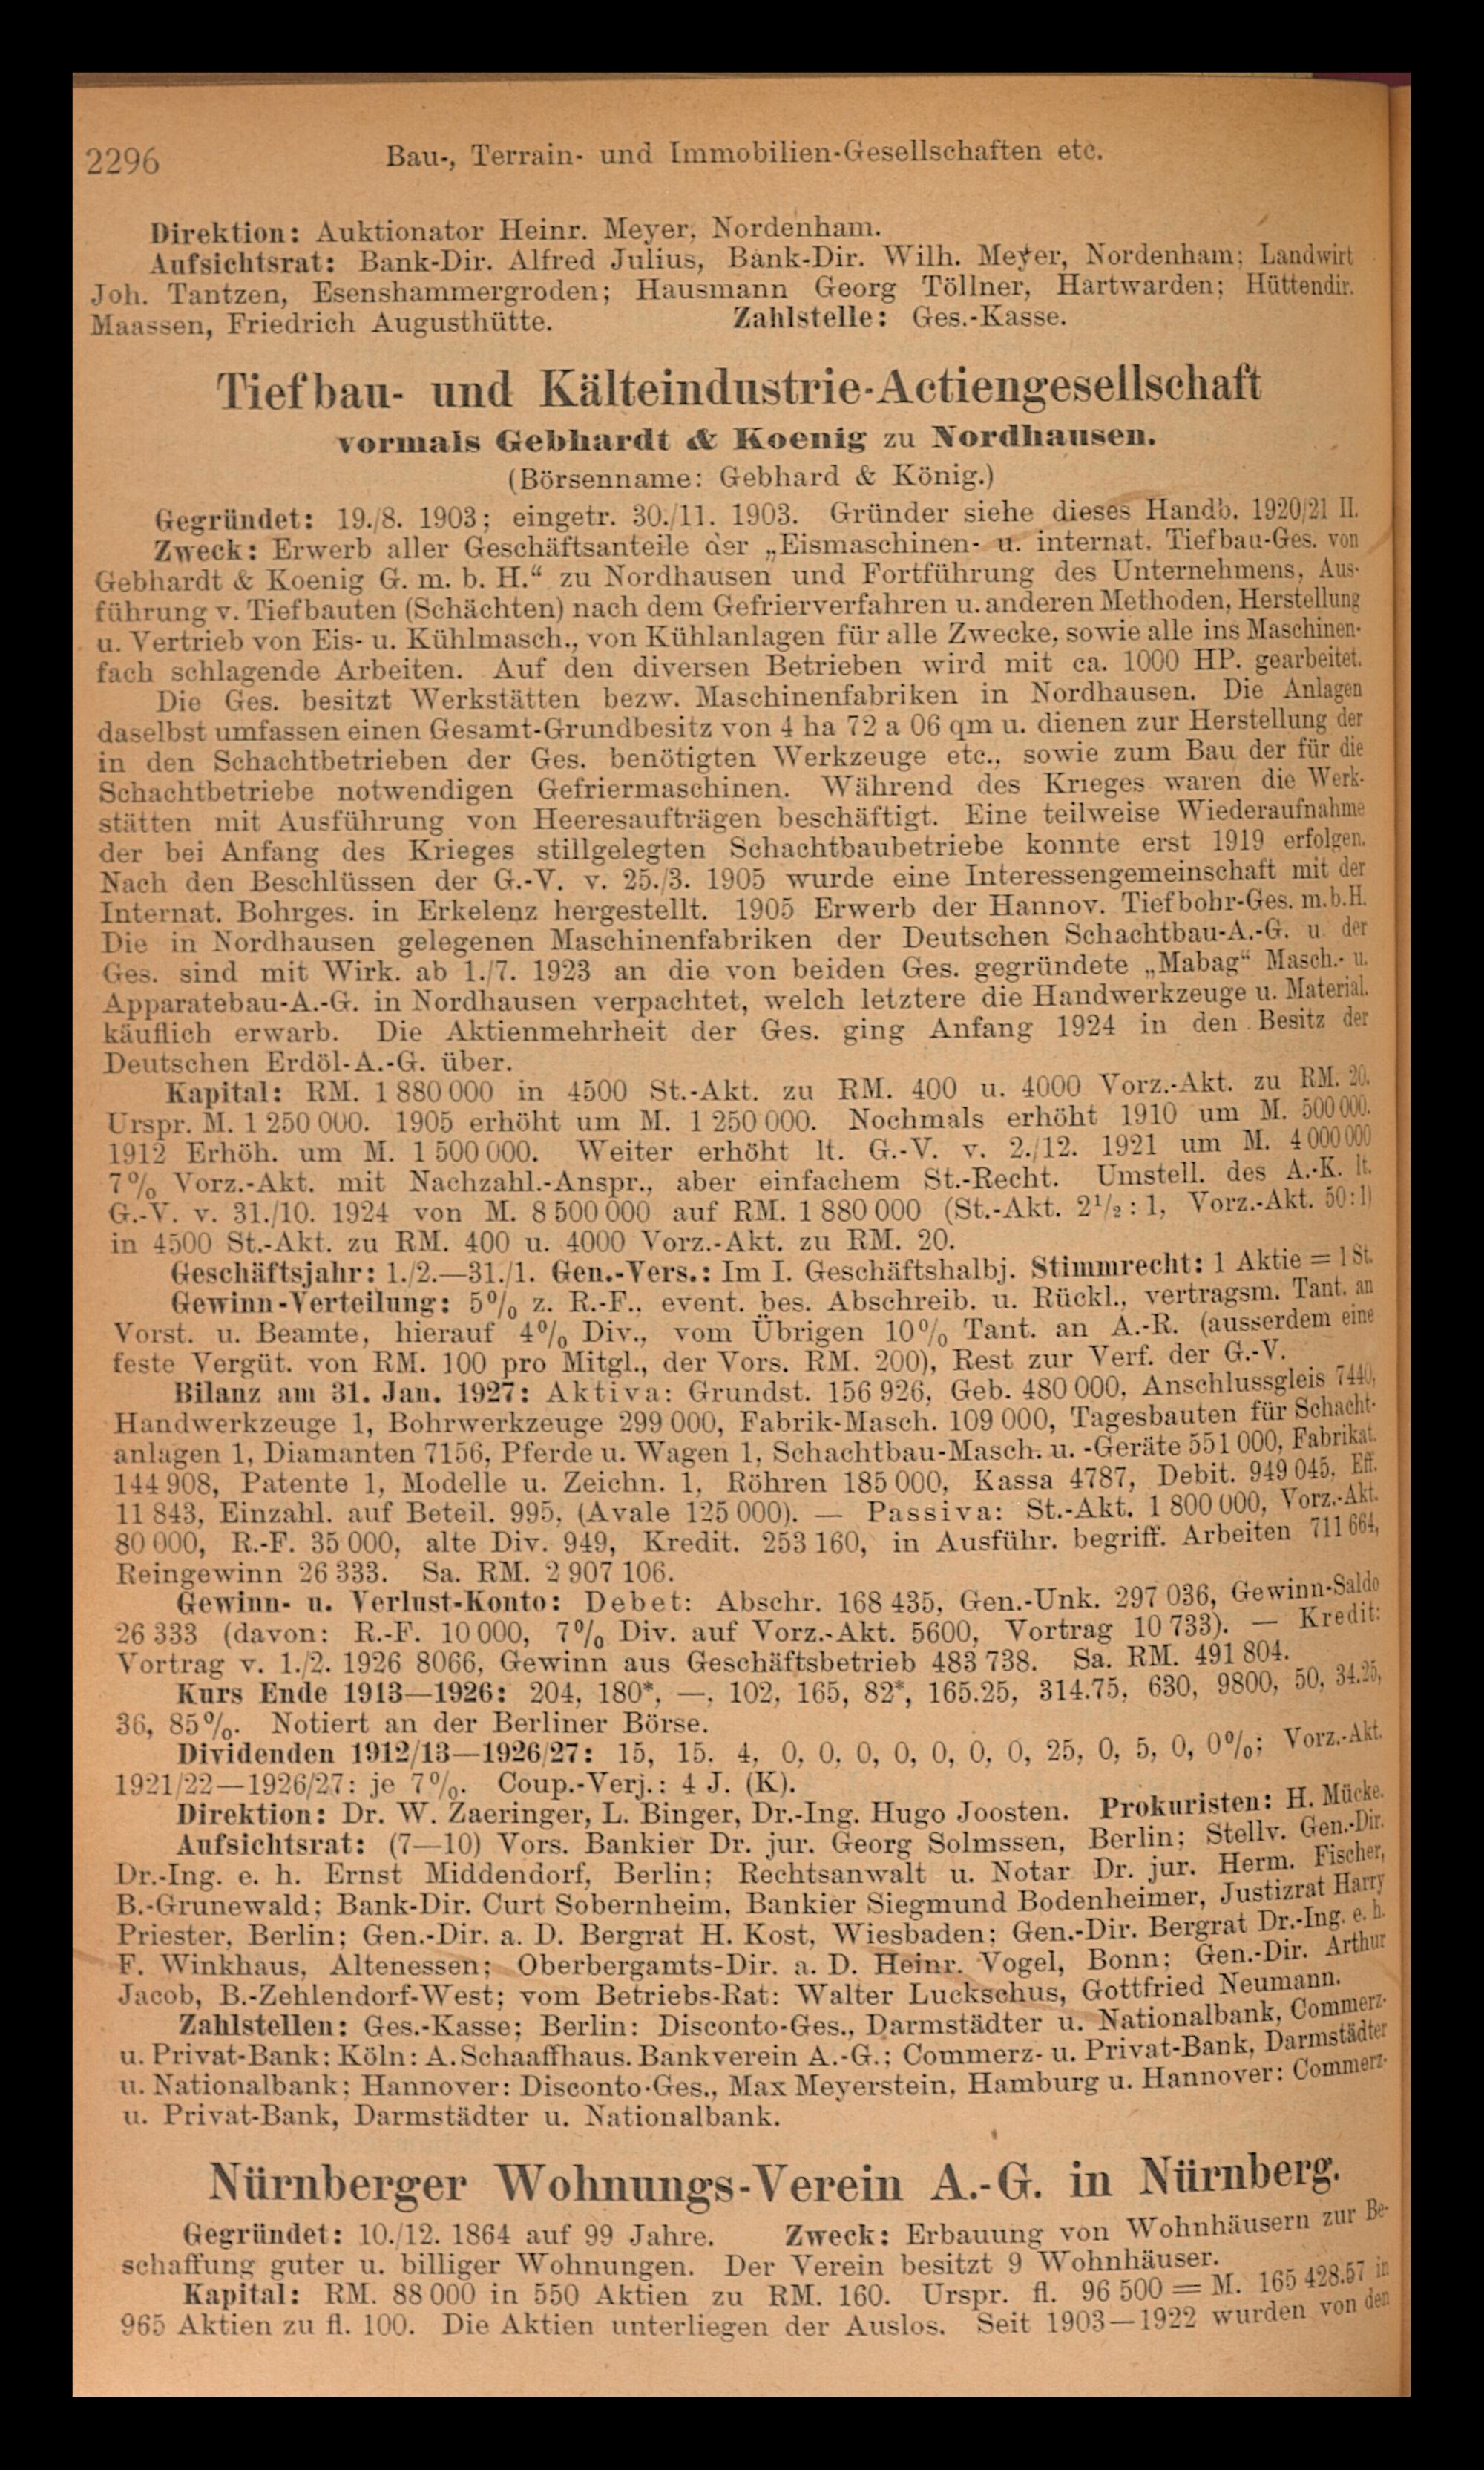 2296
Bau-, Terrain- und Immobilien-Gesellschaften etc.
Direktion: Auktionator Heinr. Meyer, Nordenham.
Aufsichtsrat: Bank-Dir. Alfred Julius, Bank-Dir. Wilh. Meyer, Nordenham; Landwirt
Joh. Tantzen, Esenshammergroden; Hausmann Georg Töllner, Hartwarden; Hüttendir.
Maassen, Friedrich Augusthütte. Zahlstelle: Ges.-Kasse.
Tiefbau- und Kälteindustrie-Actiengesellschaft
vormals Gebhardt & Koenig zu Nordhausen.
(Börsenname: Gebhard & König.)
Gegründet: 19./8. 1903; eingetr. 30./11. 1903. Gründer siehe dieses Handb. 1920/21 II.
Zweck: Erwerb aller Geschäftsanteile der „Eismaschinen- u. internat. Tiefbau-Ges. von
Gebhardt & Koenig G. m. b. H.“ zu Nordhausen und Fortführung des Unternehmens, Aus-
führung v. Tiefbauten (Schächten) nach dem Gefrierverfahren u. anderen Methoden, Herstellung
u. Vertrieb von Eis- u. Kühlmasch., von Kühlanlagen für alle Zwecke, sowie alle ins Maschinen-
fach schlagende Arbeiten. Auf den diversen Betrieben wird mit ca. 1000 HP. gearbeitet.
Die Ges. besitzt Werkstätten bezw. Maschinenfabriken in Nordhausen. Die Anlagen
daselbst umfassen einen Gesamt-Grundbesitz von 4 ha 72 a 06 qm u. dienen zur Herstellung der
in den Schachtbetrieben der Ges. benötigten Werkzeuge etc., sowie zum Bau der für die
Schachtbetriebe notwendigen Gefriermaschinen. Während des Krieges waren die Werk-
stätten mit Ausführung von Heeresaufträgen beschäftigt. Eine teilweise Wiederaufnahme
der bei Anfang des Krieges stillgelegten Schachtbaubetriebe konnte erst 1919 erfolgen.
Nach den Beschlüssen der G.-V. v. 25./3. 1905 wurde eine Interessengemeinschaft mit der
Internat. Bohrges. in Erkelenz hergestellt. 1905 Erwerb der Hannov. Tiefbohr-Ges. m.b.H.
Die in Nordhausen gelegenen Maschinenfabriken der Deutschen Schachtbau-A.-G. u. der
Ges. sind mit Wirk. ab 1./7. 1923 an die von beiden Ges. gegründete „Mabag“ Masch.- u.
Apparatebau-A.-G. in Nordhausen verpachtet, welch letztere die Handwerkzeuge u. Material.
käuflich erwarb. Die Aktienmehrheit der Ges. ging Anfang 1924 in den Besitz der
Deutschen Erdöl-A.-G. über.
Kapital: RM. 1 880 000 in 4500 St.-Akt. zu RM. 400 u. 4000 Vorz.-Akt. zu RM. 20.
Urspr. M. 1 250 000. 1905 erhöht um M. 1 250 000. Nochmals erhöht 1910 um M. 500 000.
1912 Erhöh. um M. 1 500 000. Weiter erhöht lt. G.-V. v. 2./12. 1921 um M. 4 000 000
7% Vorz.-Akt. mit Nachzahl.-Anspr., aber einfachem St.-Recht. Umstell. des A.-K. lt.
G.-V. v. 31./10. 1924 von M. 8 500 000 auf RM. 1 880 000 (St.-Akt. 2½ : 1, Vorz.-Akt. 50:1)
in 4500 St.-Akt. zu RM. 400 u. 4000 Vorz.-Akt. zu RM. 20.
Geschäftsjahr: 1./2.—31./1. Gen.-Vers.: Im I. Geschäftshalbj. Stimmrecht: 1 Aktie = 1 St.
Gewinn-Verteilung: 5% z. R.-F., event. bes. Abschreib. u. Rückl., vertragsm. Tant. an
Vorst. u. Beamte, hierauf 4% Div., vom Übrigen 10% Tant. an A.-R. (ausserdem eine
feste Vergüt. von RM. 100 pro Mitgl., der Vors. RM. 200), Rest zur Verf. der G.-V.
Bilanz am 31. Jan. 1927: Aktiva: Grundst. 156 926, Geb. 480 000, Anschlussgleis 7440,
Handwerkzeuge 1, Bohrwerkzeuge 299 000, Fabrik-Masch. 109 000, Tagesbauten für Schacht-
anlagen 1, Diamanten 7156, Pferde u. Wagen 1, Schachtbau-Masch. u. -Geräte 551 000, Fabrikat.
144 908, Patente 1, Modelle u. Zeichn. 1, Röhren 185 000, Kassa 4787, Debit. 949 045, Eff.
11 843, Einzahl. auf Beteil. 995, (Avale 125 000). — Passiva: St.-Akt. 1 800 000, Vorz.-Akt.
80 000, R.-F. 35 000, alte Div. 949, Kredit. 253 160, in Ausführ. begriff. Arbeiten 711 664,
Reingewinn 26 333. Sa. RM. 2 907 106.
Gewinn- u. Verlust-Konto: Debet: Abschr. 168 435, Gen.-Unk. 297 036, Gewinn-Saldo
26 333 (davon: R.-F. 10 000, 7% Div. auf Vorz.-Akt. 5600, Vortrag 10 733). — Kredit:
Vortrag v. 1./2. 1926 8066, Gewinn aus Geschäftsbetrieb 483 738. Sa. RM. 491 804.
Kurs Ende 1913—1926: 204, 180*, —, 102, 165, 82*, 165.25, 314.75, 630, 9800, 50, 34.25,
36, 85%. Notiert an der Berliner Börse.
Dividenden 1912/13—1926/27: 15, 15, 4, 0, 0, 0, 0, 0, 0, 0, 25, 0, 5, 0, 0%; Vorz.-Akt.
1921/22—1926/27: je 7%. Coup.-Verj.: 4 J. (K).
Direktion: Dr. W. Zaeringer, L. Binger, Dr.-Ing. Hugo Joosten. Prokuristen: H. Mücke.
Aufsichtsrat: (7—10) Vors. Bankier Dr. jur. Georg Solmssen, Berlin; Stellv. Gen.-Dir.
Dr.-Ing. e. h. Ernst Middendorf, Berlin; Rechtsanwalt u. Notar Dr. jur. Herm. Fischer,
B.-Grunewald; Bank-Dir. Curt Sobernheim, Bankier Siegmund Bodenheimer, Justizrat Harry
Priester, Berlin; Gen.-Dir. a. D. Bergrat H. Kost, Wiesbaden; Gen.-Dir. Bergrat Dr.-Ing. e. h.
F. Winkhaus, Altenessen; Oberbergamts-Dir. a. D. Heinr. Vogel, Bonn; Gen.-Dir. Arthur
Jacob, B.-Zehlendorf-West; vom Betriebs-Rat: Walter Luckschus, Gottfried Neumann.
Zahlstellen: Ges.-Kasse; Berlin: Disconto-Ges., Darmstädter u. Nationalbank, Commerz-
u. Privat-Bank; Köln: A. Schaaffhaus. Bankverein A.-G.; Commerz- u. Privat-Bank, Darmstädter
u. Nationalbank; Hannover: Disconto-Ges., Max Meyerstein, Hamburg u. Hannover: Commerz-
u. Privat-Bank, Darmstädter u. Nationalbank.
Nürnberger Wohnungs-Verein A.-G. in Nürnberg.
Gegründet: 10./12. 1864 auf 99 Jahre. Zweck: Erbauung von Wohnhäusern zur Be-
schaffung guter u. billiger Wohnungen. Der Verein besitzt 9 Wohnhäuser.
Kapital: RM. 88 000 in 550 Aktien zu RM. 160. Urspr. fl. 96 500 = M. 165 428.57 in
965 Aktien zu fl. 100. Die Aktien unterliegen der Auslos. Seit 1903—1922 wurden von den